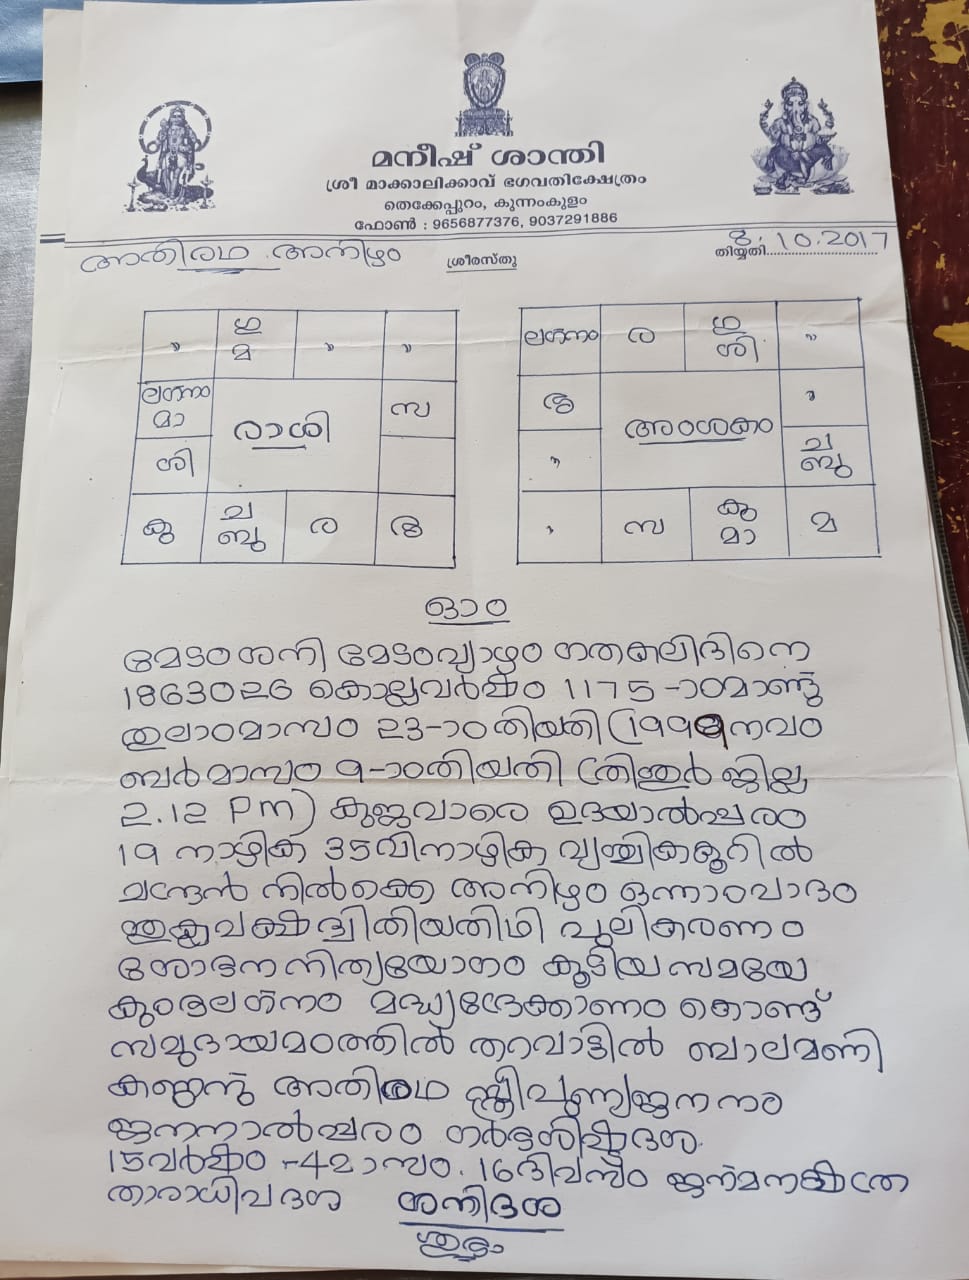 മനീഷ് ശാന്തി
ശ്രീ മാക്കാലിക്കാവ് ഭഗവതിക്ഷേത്രം
തെക്കേപ്പുറം, കുന്നംകുളം
ഫോൺ : 9656877376, 9037291886
അതിരഥ അനിഴം
ശ്രീരസ്തു
തിയ്യതി 8.10.2017
" ഗു മ " "
ലഗ്നം മാ രാശി സ
ശി
കു ച ബു ര
ലഗ്നം ര ഗു ശി "
അംശകം "
" ച ബു
" സ കു മാ മ
ഓം
മേടംശനി മേടംവ്യാഴം ഗതകലിദിനെ
1863026 കൊല്ലവർഷം 1175-ാംമാണ്ടു
തുലാംമാസം 23-ാംതിയതി (1999നവം
ബർമാസം 9-ാംതിയതി (തൃശ്ശൂർ ജില്ല
2.12 PM) കുജവാരെ ഉദയാൽപ്പരം
19 നാഴിക 35വിനാഴിക വൃശ്ചികകൂറിൽ
ചന്ദ്രൻ നിൽക്കെ അനിഴം ഒന്നാംപാദം
ശുക്ലപക്ഷദ്വിതിയതിഥി പുലികരണം
ശോഭനനിത്യയോഗം കൂടിയസമയേ
കുംഭലഗ്നം മദ്ധ്യദ്രേക്കാണം കൊണ്ട്
സമുദായമഠത്തിൽ തറവാട്ടിൽ ബാലമണി
കണ്ഠന്നു അതിരഥ സ്ത്രീപുണ്യജനനം
ജനനാൽപ്പരം ഗർഭശിഷ്ടദശ
15വർഷം -4മാസം. 16ദിവസം ജന്മനക്ഷത്ര
താരാധിപദശ ശനിദശ
ശുഭം